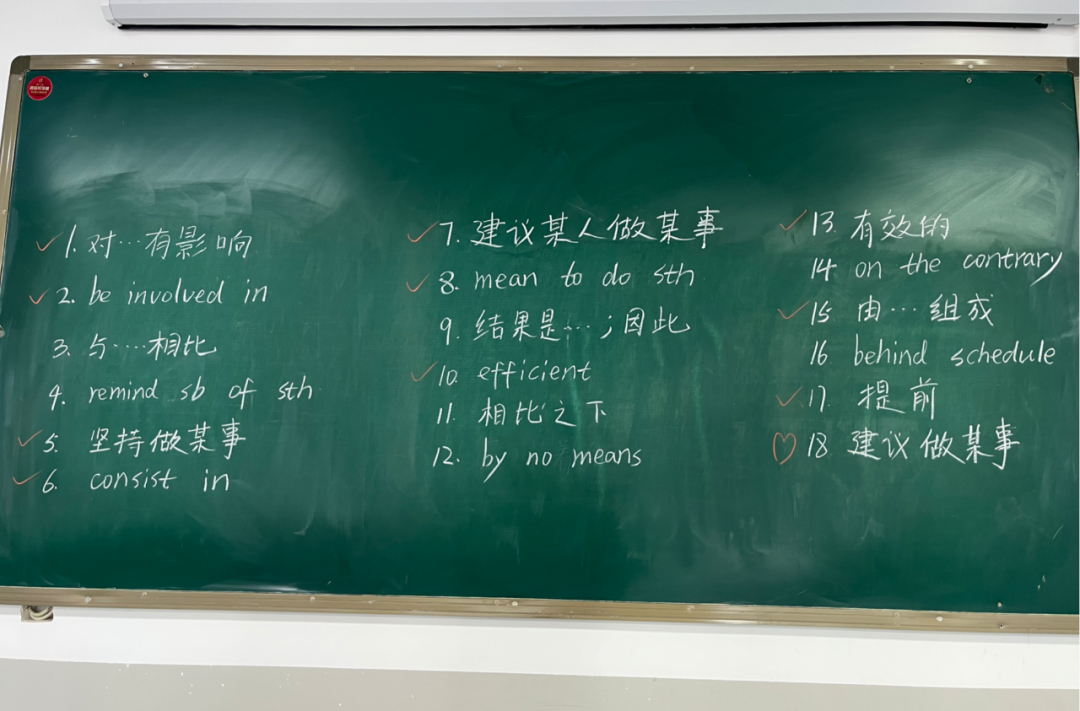 1. 对…有影响
2. be involved in
3. 与…相比
4. remind sb of sth
5. 坚持做某事
6. consist in
7. 建议某人做某事
8. mean to do sth
9. 结果是…;因此
10. efficient
11. 相比之下
12. by no means
13 有效的
14 on the contrary
15 由…组成
16 behind schedule
17. 提前
18 建议做某事